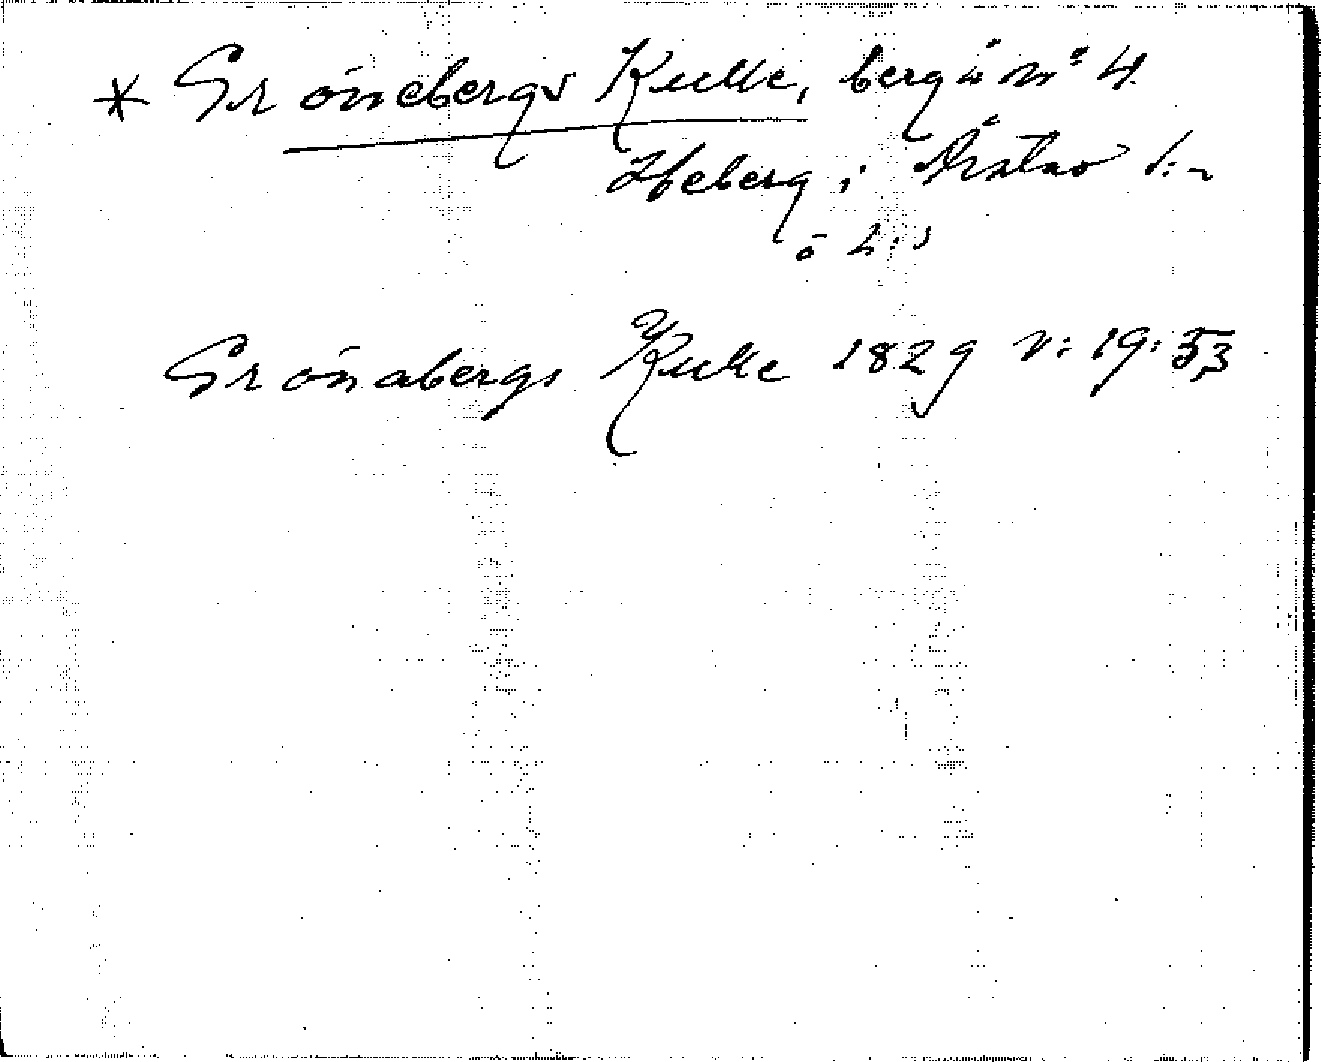 * Grönebergs Kulle, berg å nº 4
Heberg i Årstad s:n
o L:s
Grönabergs Kulle 1829 v: 19: 53